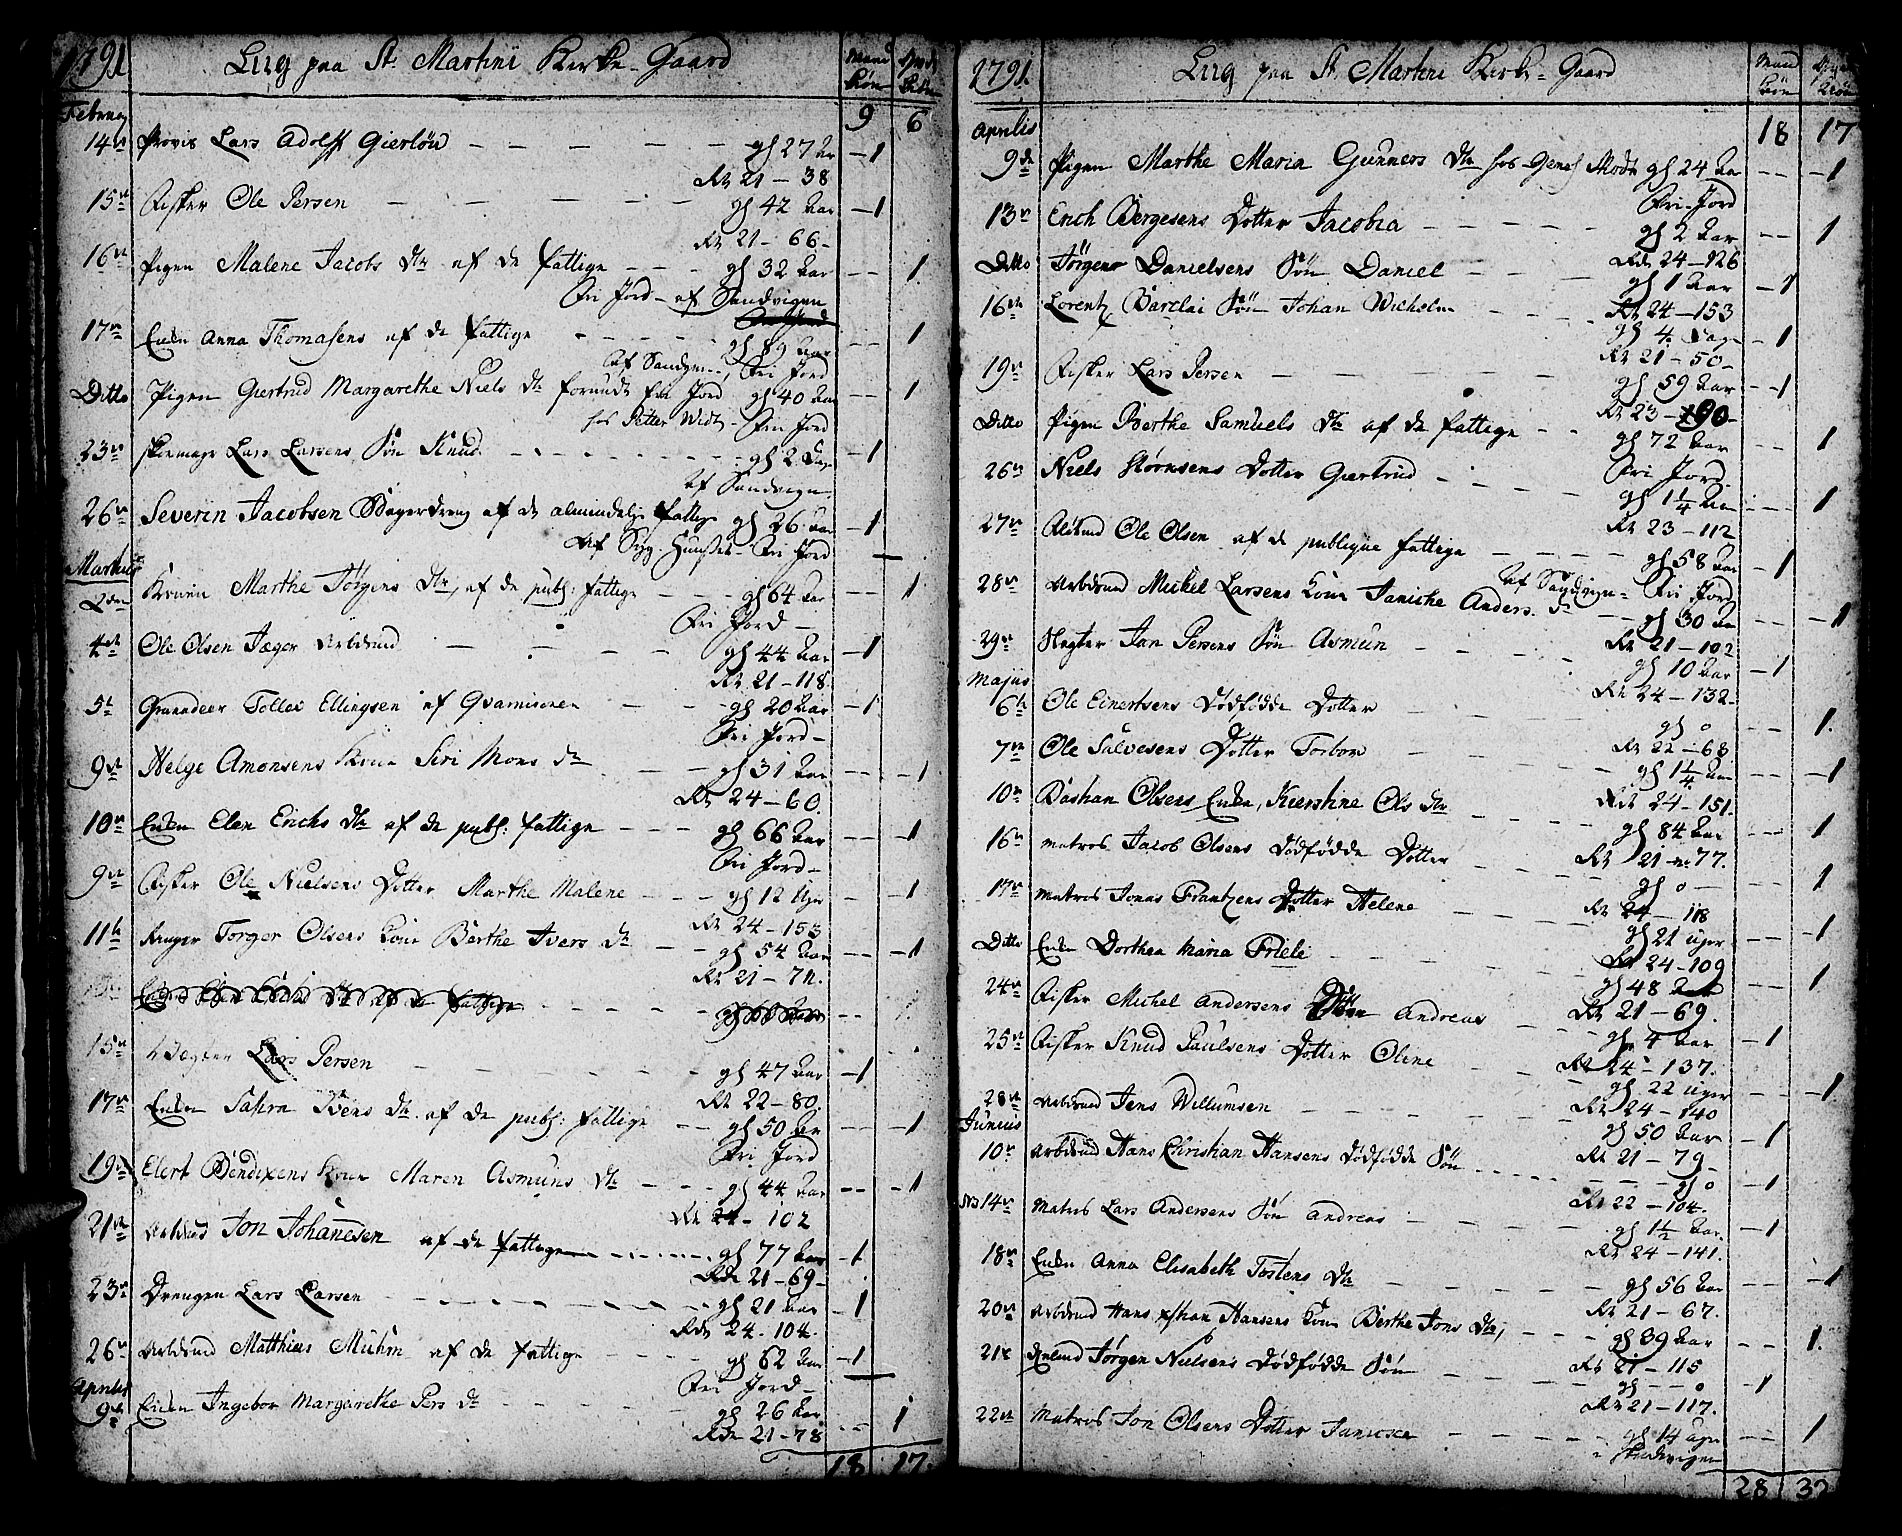 1791 Liig paa St. Martini Kirke-Gaard Mand Kiøn Qvinde Kiøn
Februarj 9 6
14de Provis Lars Adolff Gierløw gl 27 Aar 1
Rd 21 - 38
15de Fisker Ole Persen gl 42 Aar 1
Rd 21 - 66
16de Pigen Malene Jacobs Dtr af de fattige gl 32 Aar 1
Fri Jord - af Sandvigen
17de Enken Anna Thomasens af de fattige gl 89 Aar 1
Af Sandvigen, Fri Jord
Ditto Pigen Giertrud Margarethe Niels Dtr forundt fri Jord gl 40 Aar 1
hos Petter Widt - Fri Jord
23de Skomager Lars Larsens Søn Knud gl 2 Dage 1
Af Sandvigen
26de Severin Jacobsen af de almindelige fattige gl 26 Aar 1
Af Syg-Huuset - Fri Jord
Martius
2den Konen Marthe Jørgens Dtr, af de publ: fattige gl 64 Aar 1
Fri Jord
4de Ole Olsen Jæger Arbdmd gl 44 Aar 1
Rd 21 - 118
5te Granadeer Tollev Ellingsen af Garnisonen gl 20 Aar 1
Fri Jord
9de Helge Amonsens Kone Siri Mons Dtr gl 31 Aar 1
Rd 24 - 60
10de Enken Elen Erichs Dtr af de publ: fattige gl 66 Aar 1
Fri Jord
9de Fisker Ole Nielsens Dotter Marthe Malene gl 12 Uger 1
Rd 24 - 153
11te Torger Olsens Kone Berthe Ivers Dtr gl 54 Aar 1
Rd 21 - 74
15de Vægter Lars Persen gl 47 Aar 1
Rd 22 - 80
17de Enken Sahra Ivens Dtr af de publ: fattige gl 50 Aar 1
Fri Jord
19de Elert Bendixens Kone Maren Asmuns Dtr gl 44 Aar 1
Rd 24 - 102
21de Arbdmd Jon Johannesen af de fattige gl 77 Aar 1
Rd 21 - 69
23de Drengen Lars Larsen gl 21 Aar 1
Rd 24 - 104
26de Arbdmd Matthias Muhm af de fattige gl 62 Aar 1
Aprilis Fri Jord
9de Enken Ingebor Margarethe Pers Dtr gl 26 Aar 1
Rd 21 - 78
18 17
1791. Liig paa St. Martini Kirke-Gaard Mand Kiøn Qvinde Kiøn
Aprilis 18 17
9de Pigen Marthe Maria Gunners Dtr hos gl 24 Aar 1
Fri Jord
13de Erich Børgesens Dotter Jacobia gl 2 Aar 1
Rd 24 - 126
Ditto Jørgen Danielsens Søn Daniel gl 1 Aar 1
Rd 24 - 153
16de Lorentz Barclai Søn Johan Wilhelm gl 4 Dage 1
Rd 21 - 50
19de Fisker Lars Persen gl 59 Aar 1
Rd 23 - 90
Ditto Pigen Berthe Samuels Dtr af de fattige gl 72 Aar 1
Fri Jord
26de Niels Størksens Dotter Giertrud gl 1 1/4 Aar 1
Rd 23 - 112
27de Ole Olsen af de publique fattige gl 58 Aar 1
Af Sandvigen - Fri Jord
28de Arbdmd Mickel Larsens Kone Janicke Anders. D gl 30 Aar 1
Rd 21 - 102
29de Vægter Jan Persens Søn Asmun gl 10 Aar 1
Majus Rd 24 - 132
6te Ole Einertsens Dødfødde Dotter gl 0 1
Rd 22 - 68
7de Ole Salvesens Dotter Torbor gl 1 1/4 Aar 1
Rd 24 - 151
10de Bastian Olsens Enke, Kierstine Ols Dtr gl 84 Aar 1
Rd 21 - 77
16de Matros Jacob Olsens Dødfødde Dotter gl 0 1
Rd 24 - 118
17de Matros Jonas Frantzens Dotter Helene gl 21 Uger 1
Rd 24 - 109
Ditto Enken Dorthea Maria Friele gl 48 Aar 1
Rd 21 - 69
24de Fisker Michel Andersens Andreas gl 4 Aar 1
Rd 24 - 137
25de Fisker Knud Paulsens Dotter Oline gl 22 Uger 1
Rd 24 - 140
28de Arbdmd Jens Willumsen gl 50 Aar 1
Junius Rd 21 - 79
10de Arbdmd Hans Christian Hansens Dødfødde Søn gl 0 1
Rd 22 - 104
14de Matros Lars Andersens Søn Andreas gl 1 1/2 Aar 1
Rd 24 - 141
18de Enken Anna Elisabeth Tostens Dtr gl 56 Aar 1
Rd 21 - 67
20de Arbdmd Hans Xstian Hansens Kone Berthe Jons Dtr, gl 39 Aar 1
Rd 21 - 115
21de Jørgen Nielsens Dødfødde Søn gl 0 1
Rd 21 - 117
22de Matros Jon Olsens Dotter Janicse gl 14 Uger 1
28 32